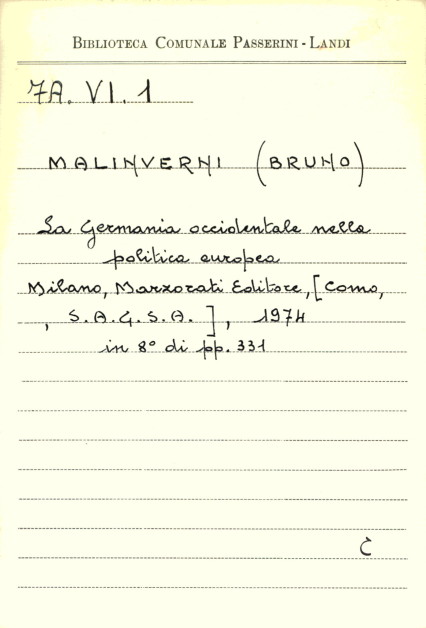 BIBLIOTECA COMUNALE PASSERINI - LANDI
7A. VI. 1
MALINVERNI (BRUNO)
La Germania occidentale nella
politica europea
Milano, Marzorati Editore, [Como,
, S.A.G.S.A.], 1974
in 8° di pp. 331